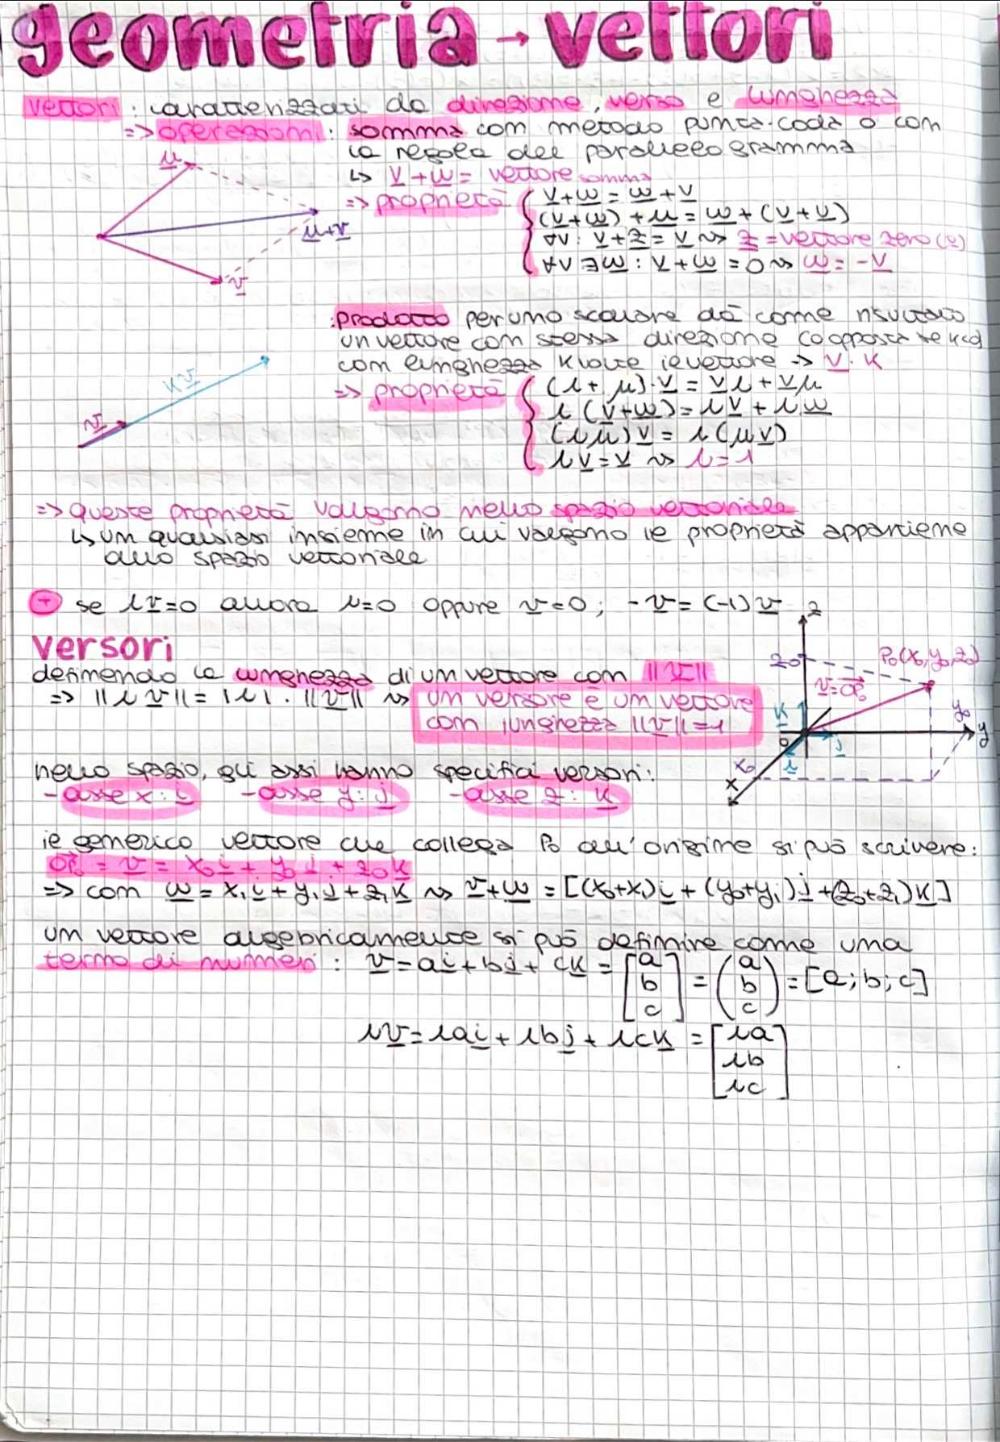 geometria → vettori
vettori: caratterizzati da direzione, verso e lunghezza
=> operazioni: somma con metodo punta-coda o con
la regola del parallelogramma
↳ v+w = vettore somma
=> proprietà { v+w = w+v
(v+w)+u = w+(v+u)
∀v: v+z = v ⇝ z = vettore zero (0)
∀v ∃w: v+w = 0 ⇝ w = -v
u
u+v
v
: prodotto per uno scalare dà come risultato
un vettore con stessa direzione (o opposta se k<0)
con lunghezza k volte il vettore → v·k
=> proprietà { (λ+μ)·v = vλ + vμ
λ(v+w) = λv + λw
(λμ)v = λ(μv)
λv = v ⇝ λ=1
v
kv
=> queste proprietà valgono nello spazio vettoriale
↳ un qualsiasi insieme in cui valgono le proprietà appartiene
allo spazio vettoriale
+ se λv=0 allora λ=0 oppure v=0; -v = (-1)v
versori
definendo la lunghezza di un vettore con ||v||
=> ||λv|| = |λ|·||v|| ⇝ un versore è un vettore
con lunghezza ||v||=1
z
z₀
P₀(x₀,y₀,z₀)
v=OP₀
k
y₀
y
0
j
i
x₀
x
nello spazio, gli assi hanno specifici versori:
- asse x: i - asse y: j - asse z: k
il generico vettore che collega P₀ all'origine si può scrivere:
OP₀ = v = x₀i + y₀j + z₀k
=> con w = x₁i + y₁j + z₁k ⇝ v+w = [(x₀+x₁)i + (y₀+y₁)j + (z₀+z₁)k]
un vettore algebricamente si può definire come una
terna di numeri: v = ai + bj + ck = [a b c] = (a b c) = [a; b; c]
λv = λai + λbj + λck = [λa
λb
λc]